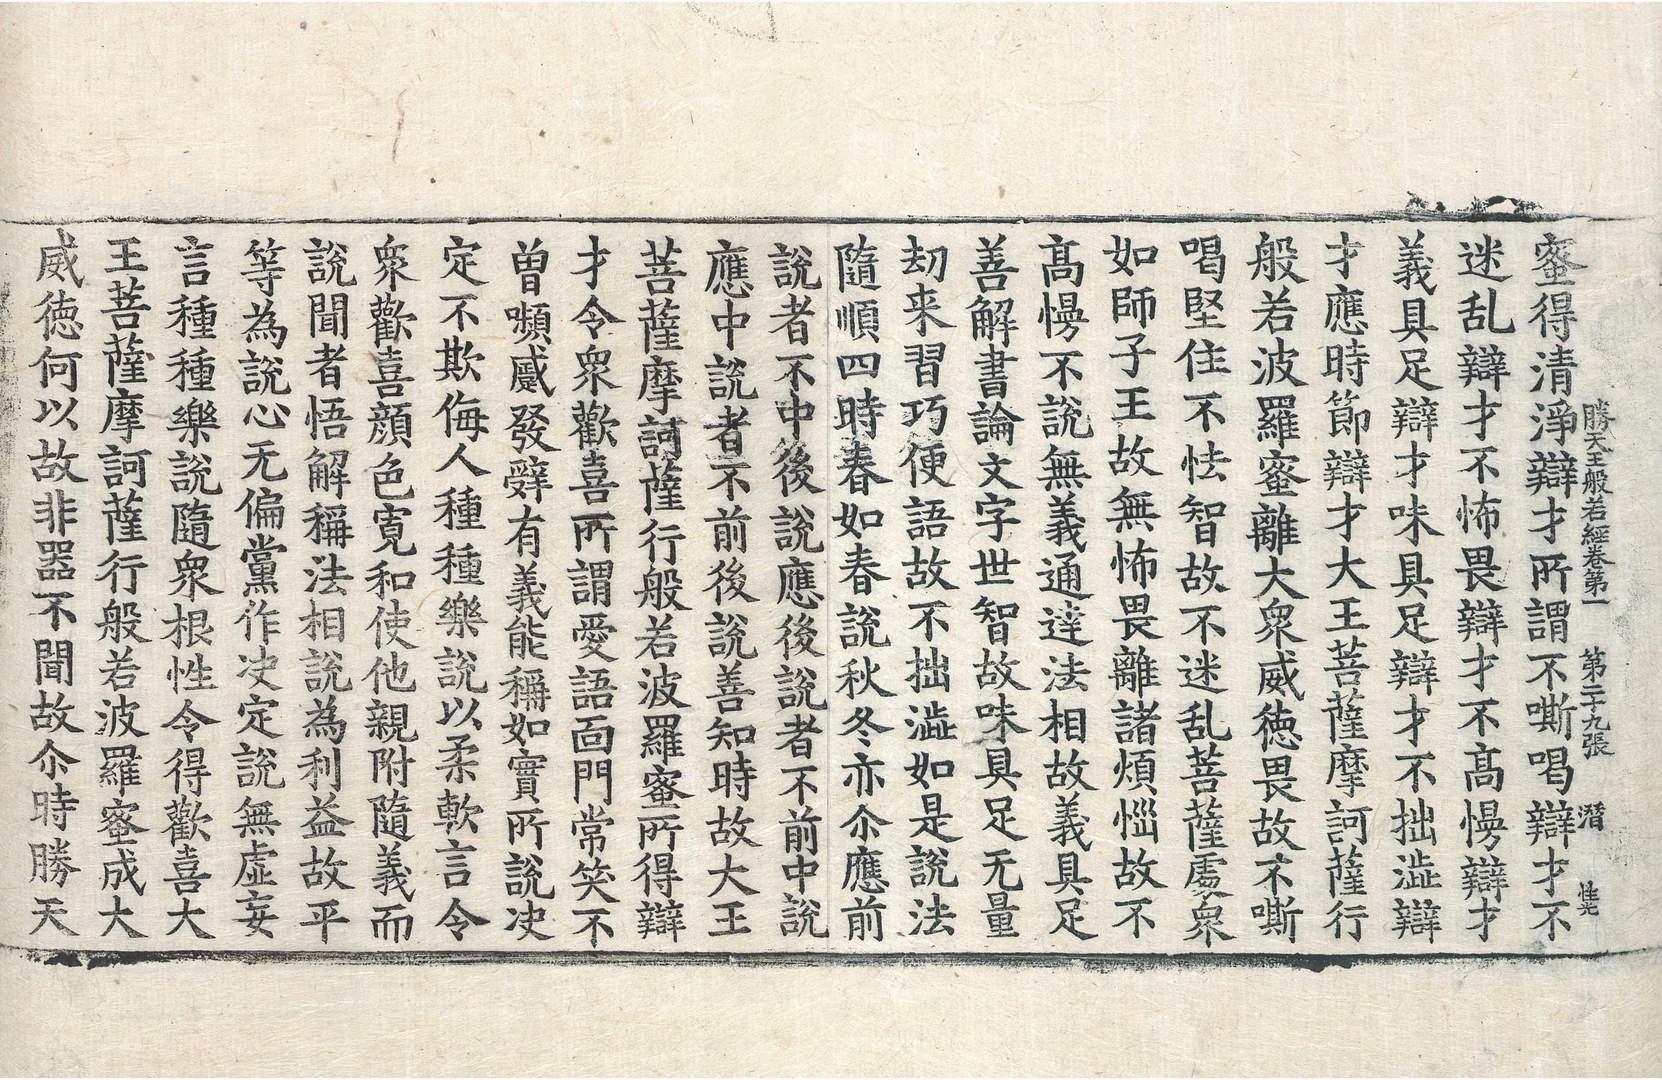 勝天王般若經卷第一　第二十九張　潛
蜜得清淨辯才所謂不嘶喝辯才不
迷乱辯才不怖畏辯才不髙慢辯才
義具足辯才味具足辯才不拙澁辯
才應時節辯才大王菩薩摩訶薩行
般若波羅蜜離大衆威徳畏故不嘶
喝堅住不怯智故不迷乱菩薩處衆
如師子王故無怖畏離諸煩惱故不
髙慢不說無義通達法相故義具足
善解書論文字世智故味具足无量
刼来習巧便語故不拙澁如是說法
隨順四時春如春說秋冬亦尒應前
說者不中後說應後說者不前中說
應中說者不前後說善知時故大王
菩薩摩訶薩行般若波羅蜜所得辯
才令衆歡喜所謂愛語面門常笑不
曽嚬蹙發辝有義能稱如實所說决
定不欺侮人種種樂說以柔軟言令
衆歡喜顔色寛和使他親附隨義而
說聞者悟解稱法相說為利益故平
等為說心无偏黨作决定說無虚妄
言種種樂說隨衆根性令得歡喜大
王菩薩摩訶薩行般若波羅蜜成大
威徳何以故非器不聞故尒時勝天